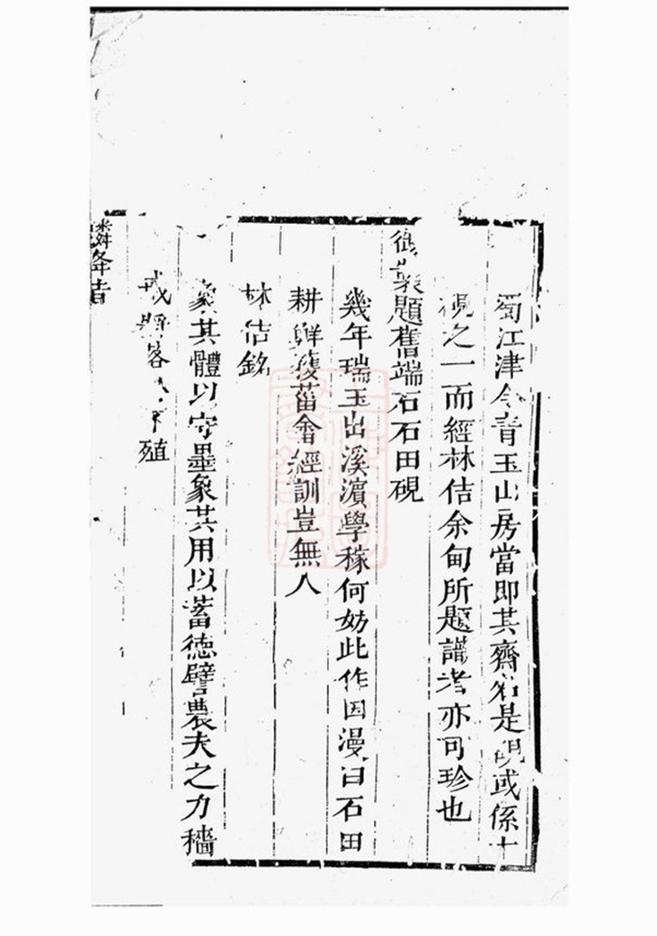 蜀江津令青玉山房當即其齋名是硯或係十
硯之一而經林佶余甸所題識者亦可珍也
御製題舊端石石田硯
幾年瑞玉出溪濱學稼何妨此作因漫曰石田
耕鮮穫菑畬經訓豈無人
林佶銘
象其體以守墨象其用以蓄德譬農夫之力穡
戒將落不殖